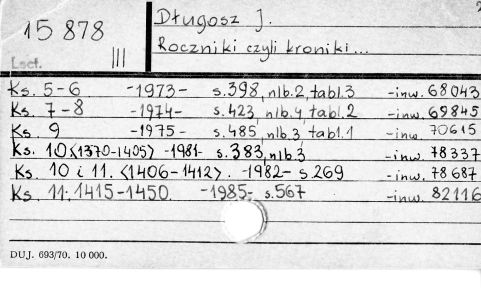 15 878
III
Długosz J.
Roczniki czyli kroniki...
Ks. 5-6 -1973- s.398, nlb.2, tabl.3 -inw. 68043
Ks. 7-8 -1974- s.423, nlb.4, tabl.2 -inw. 69845
Ks. 9 -1975- s.485, nlb.3 tabl.1 -inw. 70615
Ks. 10 <1370-1405> -1981- s.383, nlb.3 -inw. 78337
Ks. 10 i 11. <1406-1412>. -1982- s.269 -inw. 78687
Ks. 11: 1415-1450 -1985- s.567 -inw. 82116
DUJ. 693/70. 10 000.